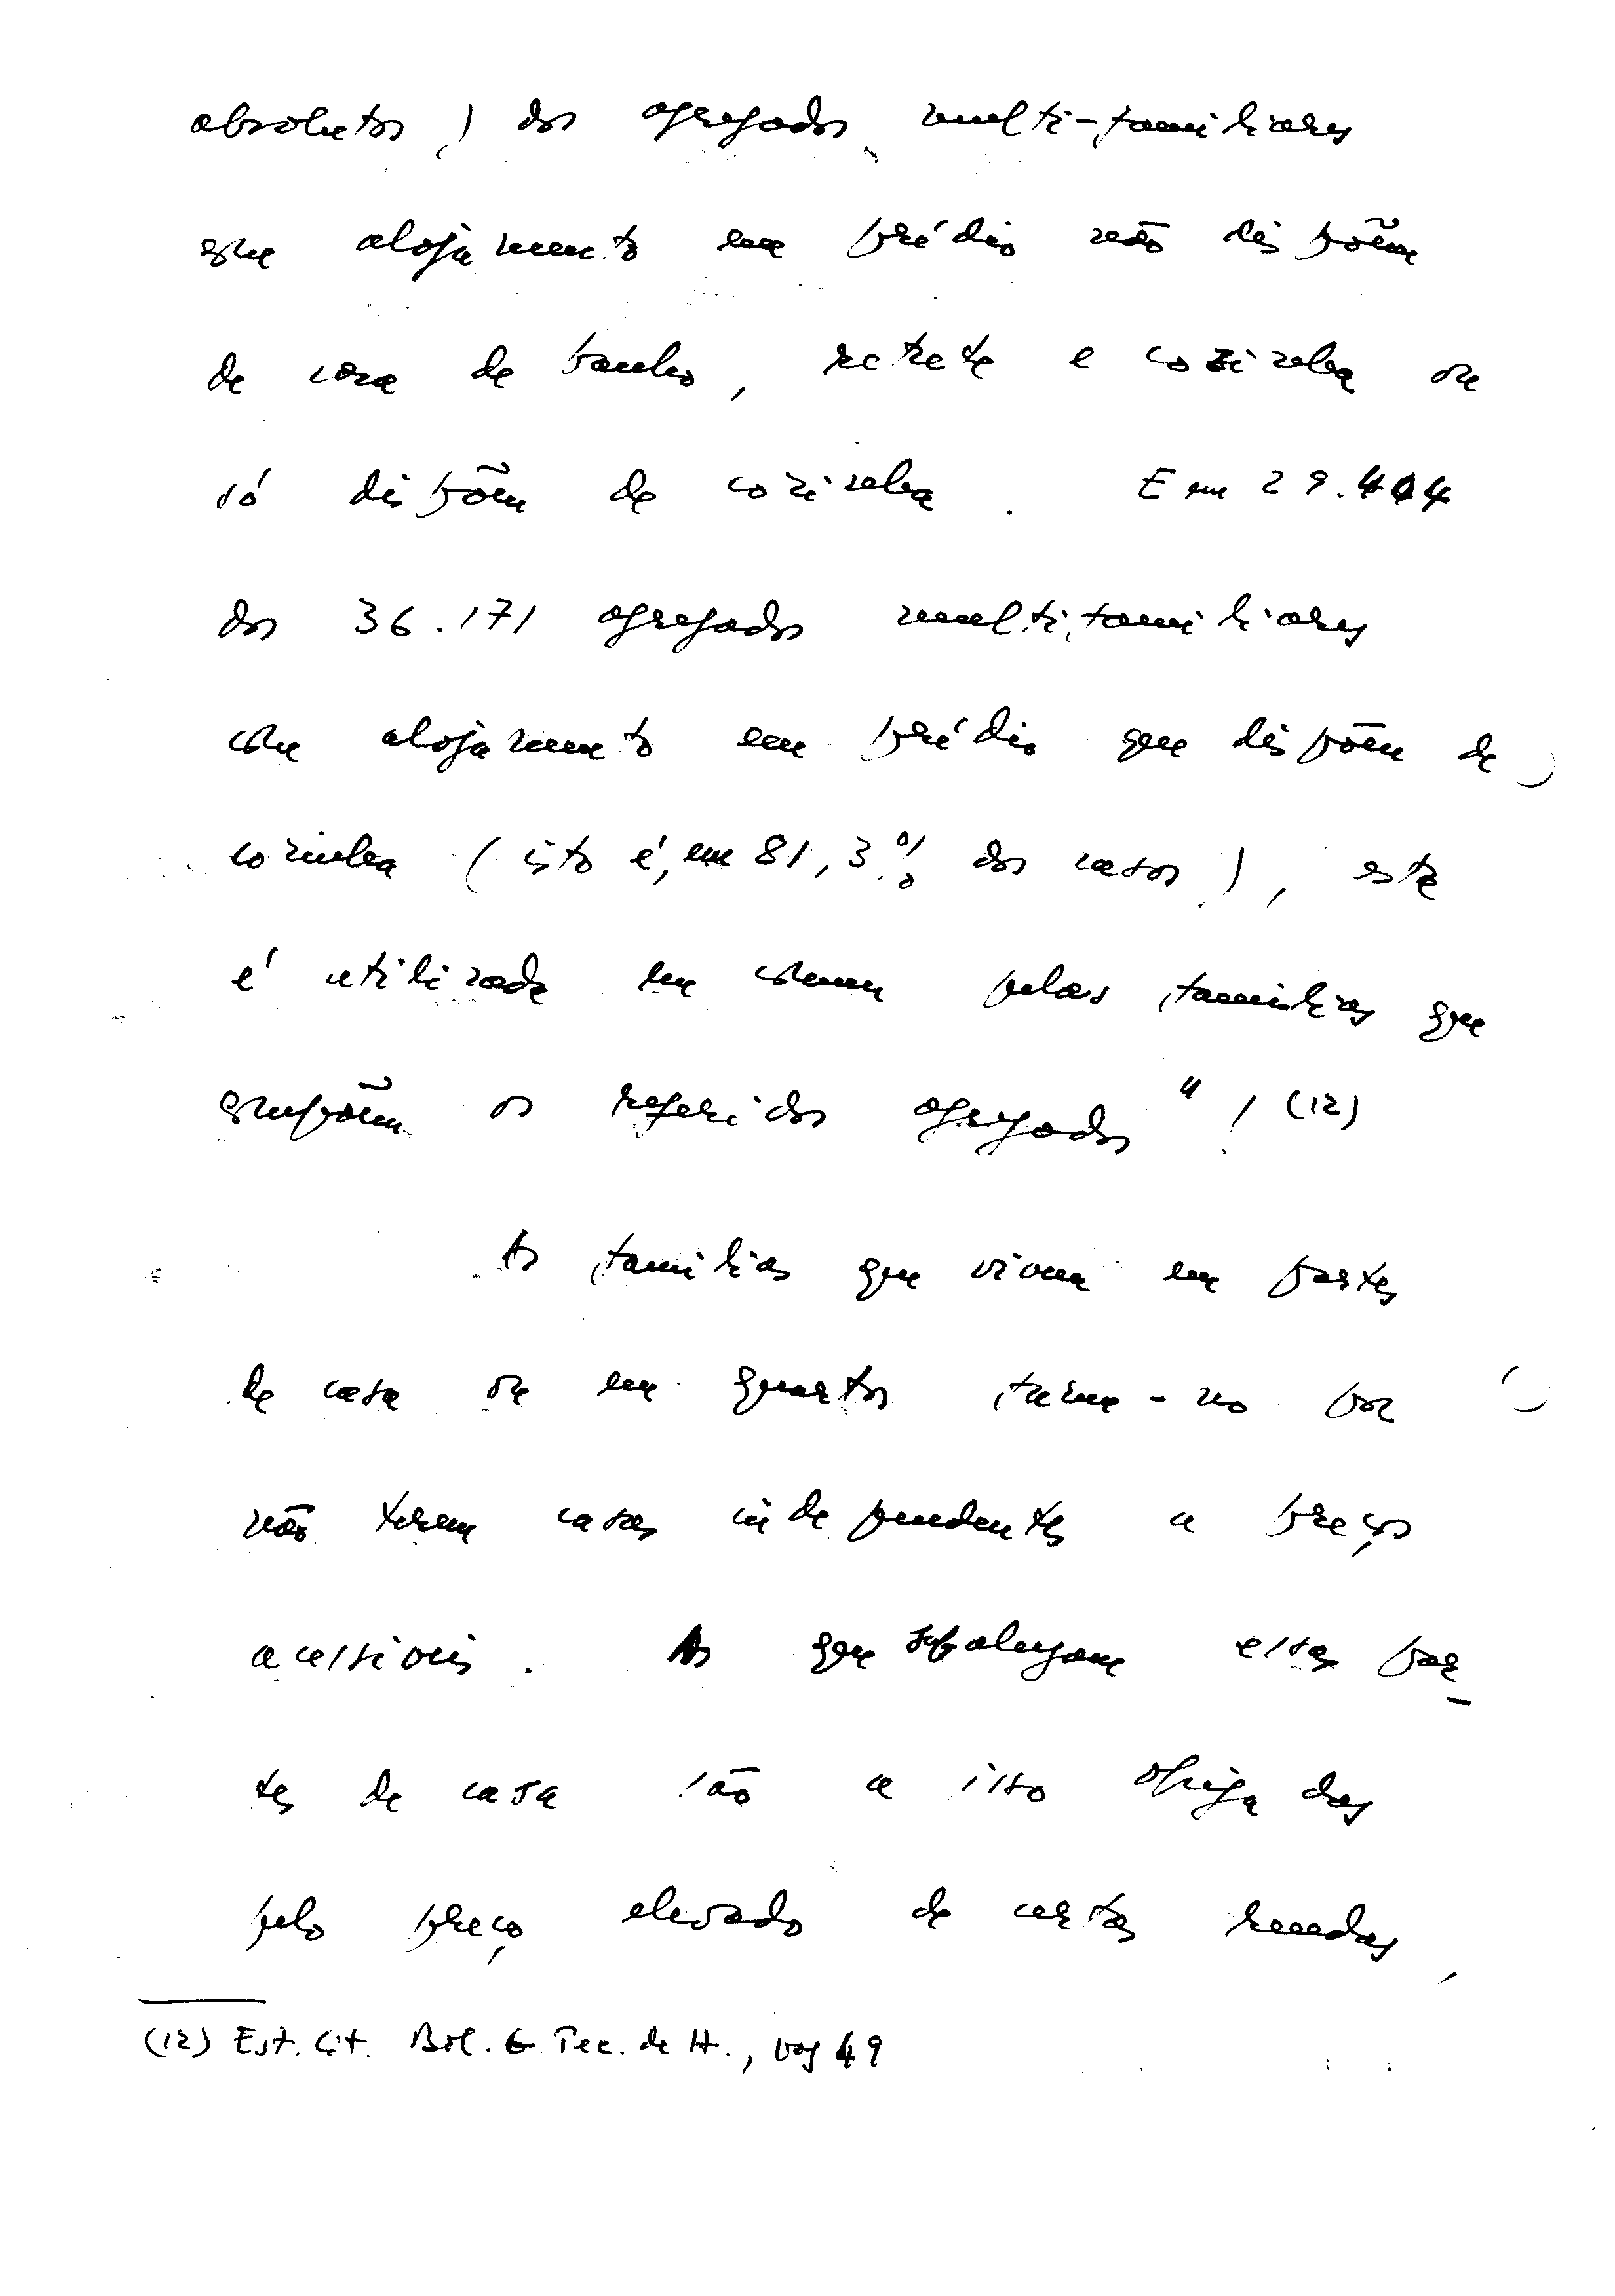 absolutos) dos agregados multi-familiares
com alojamento em prédio não dispõem
de casa de banho, retrete e cozinha ou
só dispõem de cozinha. E em 29.404
dos 36.171 agregados multifamiliares
com alojamento em prédio que dispõem de
cozinha (isto é, em 81,3% dos casos), esta
é utilizada em comum pelas famílias que
compõem os referidos agregados"! (12)
As famílias que vivem em partes
de casa ou em quartos fazem-no por
não terem casas independentes a preços
acessíveis. As que subalugam essas par-
tes de casa são a isso obrigadas
pelo preço elevado de certas rendas,
(12) Est. cit. Bol. G. Tec. de H., pag 49